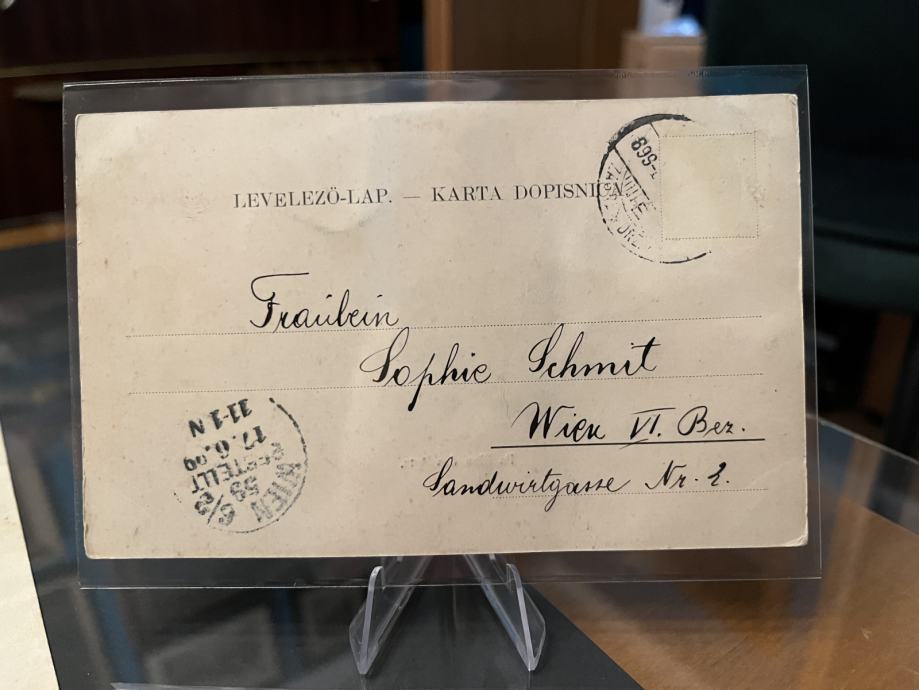 LEVELEZÖ-LAP. — KARTA DOPISNICA
Fraülein
Sophie Schmit
Wien VI. Bez.
Landwirtgasse Nr. 2.
WIEN
59
BESTELLT
17.6.99
11-1 N